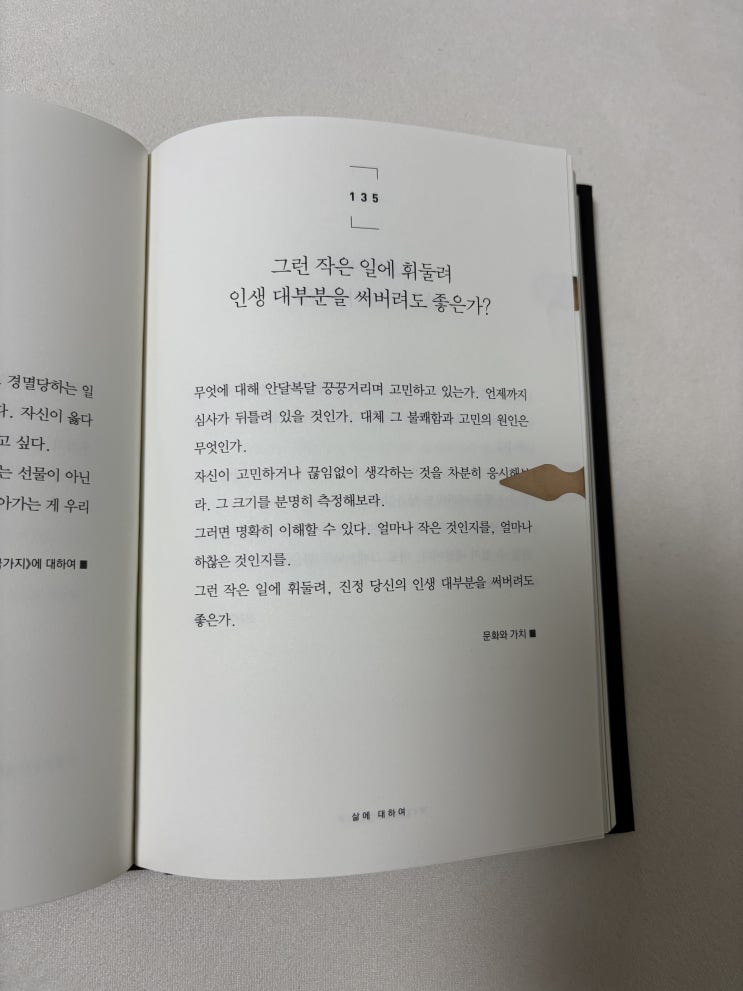 경멸당하는 일
다. 자신이 옳다
고 싶다.
는 선물이 아닌
아가는 게 우리
가지》에 대하여
135
그런 작은 일에 휘둘려
인생 대부분을 써버려도 좋은가?
무엇에 대해 안달복달 끙끙거리며 고민하고 있는가. 언제까지
심사가 뒤틀려 있을 것인가. 대체 그 불쾌함과 고민의 원인은
무엇인가.
자신이 고민하거나 끊임없이 생각하는 것을 차분히 응시해보
라. 그 크기를 분명히 측정해보라.
그러면 명확히 이해할 수 있다. 얼마나 작은 것인지를, 얼마나
하찮은 것인지를.
그런 작은 일에 휘둘려, 진정 당신의 인생 대부분을 써버려도
좋은가.
문화와 가치
삶에 대하여